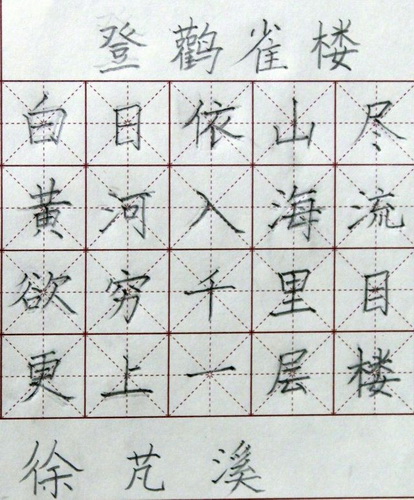 登鹳雀楼
白日依山尽
黄河入海流
欲穷千里目
更上一层楼
徐芃溪